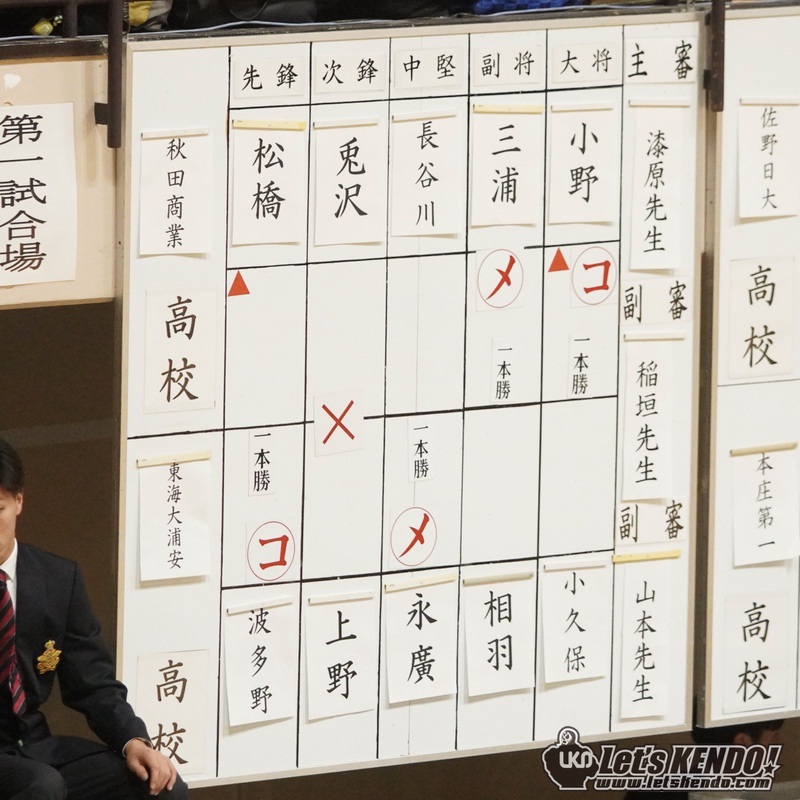 第一試合場
先鋒
次鋒
中堅
副将
大将
主審
秋田商業
高校
松橋
兎沢
長谷川
三浦
小野
漆原先生
▲
メ
一本勝
▲
コ
一本勝
副審
稲垣先生
×
一本勝
コ
一本勝
メ
副審
東海大浦安
高校
波多野
上野
永廣
相羽
小久保
山本先生
佐野日大
高校
本庄第一
高校
UKN
LET'S KENDO!
www.letskendo.com